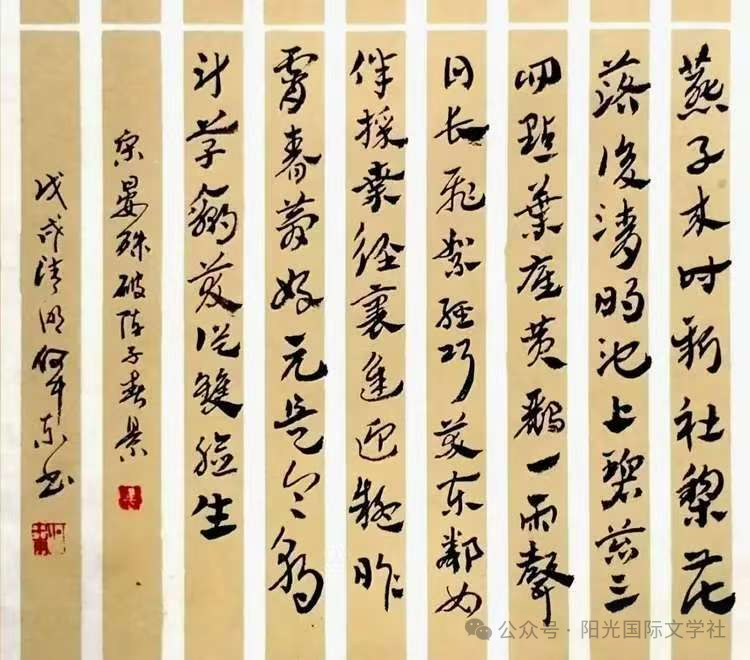 燕子来时新社梨花
落後清明池上碧苔三
四點葉底黄鸝一两聲
日长飛絮轻巧笑东鄰女
伴採桑径裏逢迎疑昨
宵春夢好元是今朝
鬥草赢笑從雙臉生
宋晏殊破阵子春景
戊戌清明何东书
公众号·阳光国际文学社